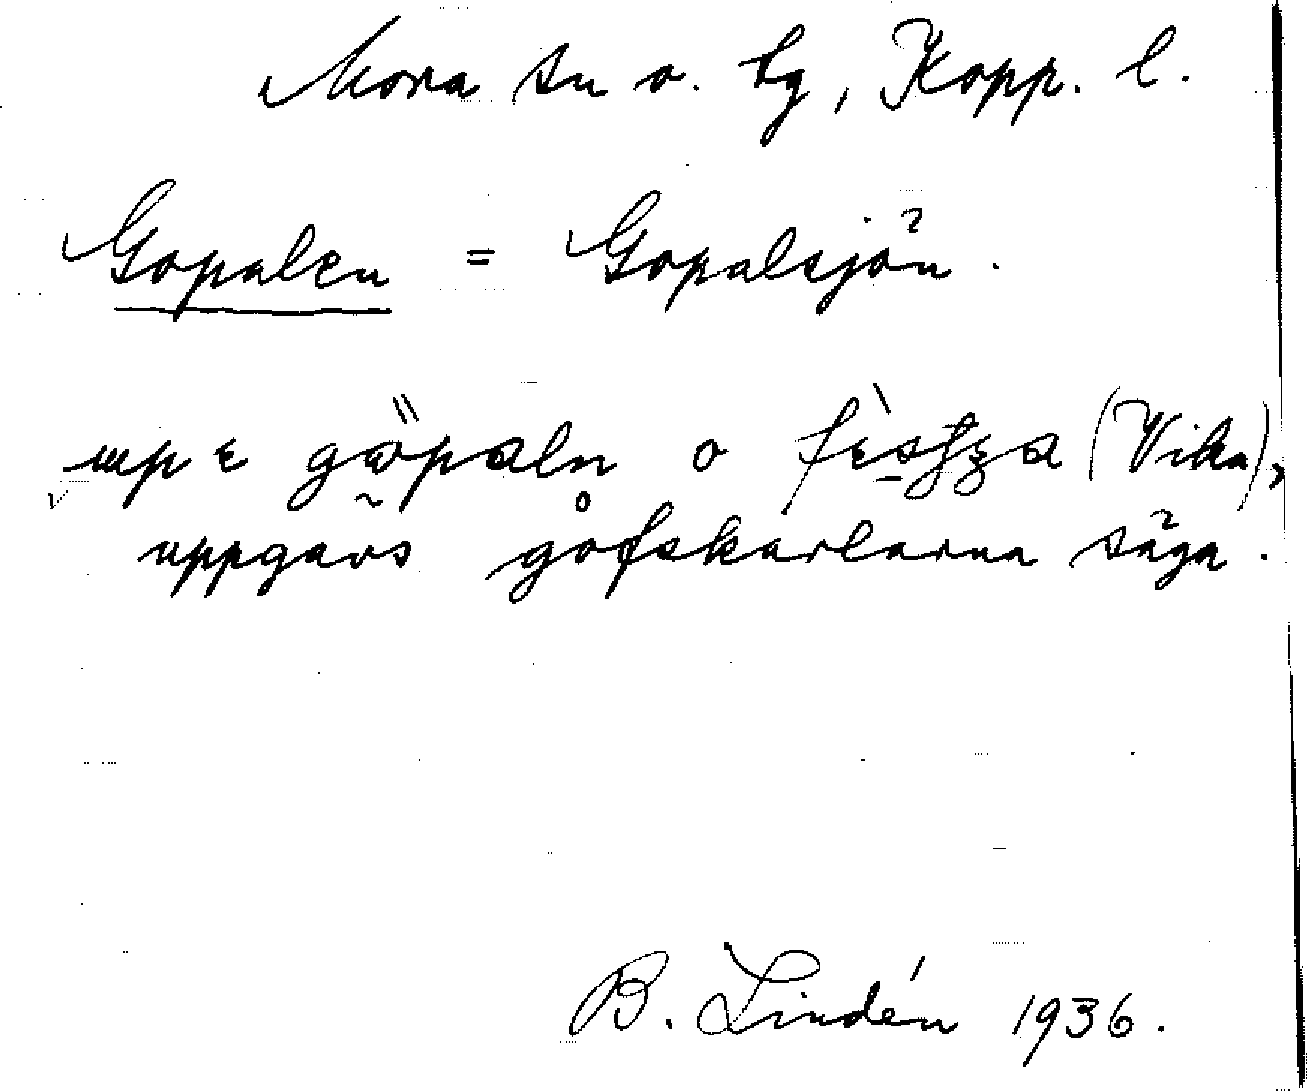 Mora sn o. tg, Kopp. l.
Gopalen = Gopalsjön.
o (Vika),
uppgavs gåfskarlarna säga.
B. Lindén 1936.